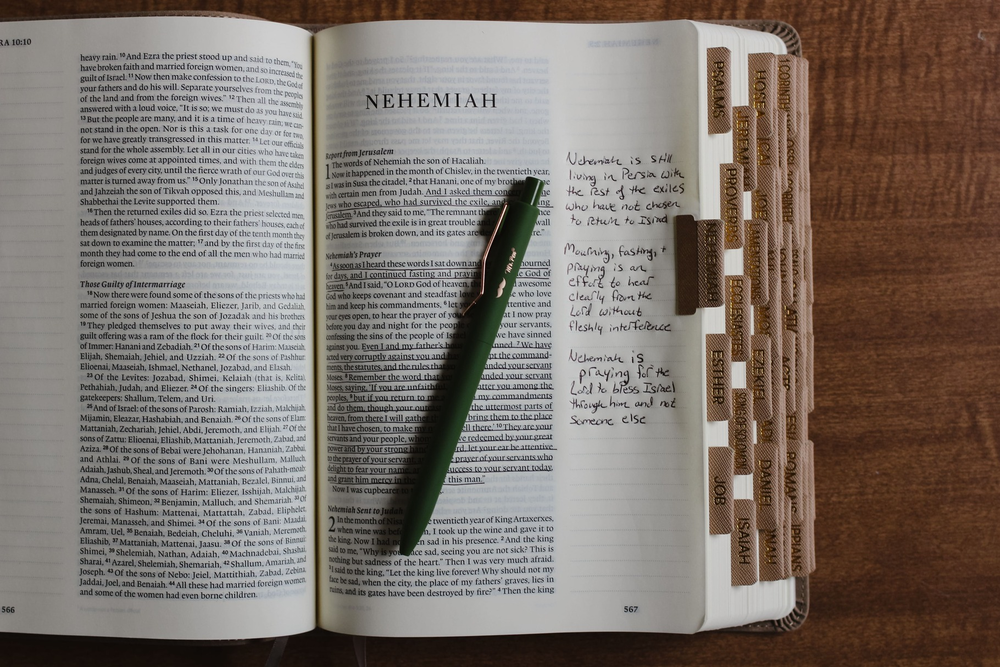 RA 10:10
heavy rain. 10 And Ezra the priest stood up and said to them, "You
have broken faith and married foreign women, and so increased the
guilt of Israel. 11 Now then make confession to the LORD, the God of
your fathers and do his will. Separate yourselves from the peoples
of the land and from the foreign wives." 12 Then all the assembly
answered with a loud voice, "It is so; we must do as you have said.
13 But the people are many, and it is a time of heavy rain; we can-
not stand in the open. Nor is this a task for one day or for two,
for we have greatly transgressed in this matter. 14 Let our officials
stand for the whole assembly. Let all in our cities who have taken
foreign wives come at appointed times, and with them the elders
and judges of every city, until the fierce wrath of our God over this
matter is turned away from us." 15 Only Jonathan the son of Asahel
and Jahzeiah the son of Tikvah opposed this, and Meshullam and
Shabbethai the Levite supported them.
16 Then the returned exiles did so. Ezra the priest selected men,
heads of fathers' houses, according to their fathers' houses, each of
them designated by name. On the first day of the tenth month they
sat down to examine the matter; 17 and by the first day of the first
month they had come to the end of all the men who had married
foreign women.
Those Guilty of Intermarriage
18 Now there were found some of the sons of the priests who had
married foreign women: Maaseiah, Eliezer, Jarib, and Gedaliah,
some of the sons of Jeshua the son of Jozadak and his brothers.
19 They pledged themselves to put away their wives, and their
guilt offering was a ram of the flock for their guilt. 20 Of the sons
of Immer: Hanani and Zebadiah. 21 Of the sons of Harim: Maaseiah,
Elijah, Shemaiah, Jehiel, and Uzziah. 22 Of the sons of Pashhur:
Elioenai, Maaseiah, Ishmael, Nethanel, Jozabad, and Elasah.
23 Of the Levites: Jozabad, Shimei, Kelaiah (that is, Kelita),
Pethahiah, Judah, and Eliezer. 24 Of the singers: Eliashib. Of the
gatekeepers: Shallum, Telem, and Uri.
25 And of Israel: of the sons of Parosh: Ramiah, Izziah, Malchijah,
Mijamin, Eleazar, Hashabiah, and Benaiah. 26 Of the sons of Elam:
Mattaniah, Zechariah, Jehiel, Abdi, Jeremoth, and Elijah. 27 Of the
sons of Zattu: Elioenai, Eliashib, Mattaniah, Jeremoth, Zabad, and
Aziza. 28 Of the sons of Bebai were Jehohanan, Hananiah, Zabbai,
and Athlai. 29 Of the sons of Bani were Meshullam, Malluch,
Adaiah, Jashub, Sheal, and Jeremoth. 30 Of the sons of Pahath-moab:
Adna, Chelal, Benaiah, Maaseiah, Mattaniah, Bezalel, Binnui, and
Manasseh. 31 Of the sons of Harim: Eliezer, Isshijah, Malchijah,
Shemaiah, Shimeon, 32 Benjamin, Malluch, and Shemariah. 33 Of the
sons of Hashum: Mattenai, Mattattah, Zabad, Eliphelet,
Jeremai, Manasseh, and Shimei. 34 Of the sons of Bani: Maadai,
Amram, Uel, 35 Benaiah, Bedeiah, Cheluhi, 36 Vaniah, Meremoth,
Eliashib, 37 Mattaniah, Mattenai, Jaasu. 38 Of the sons of Binnui:
Shimei, 39 Shelemiah, Nathan, Adaiah, 40 Machnadebai, Shashai,
Sharai, 41 Azarel, Shelemiah, Shemariah, 42 Shallum, Amariah, and
Joseph. 43 Of the sons of Nebo: Jeiel, Mattithiah, Zabad, Zebina,
Jaddai, Joel, and Benaiah. 44 All these had married foreign women,
and some of the women had even borne children.
566
NEHEMIAH
Report from Jerusalem
1 The words of Nehemiah the son of Hacaliah.
Now it happened in the month of Chislev, in the twentieth year,
as I was in Susa the citadel, 2 that Hanani, one of my brothers
with certain men from Judah. And I asked them
Jews who escaped, who had survived the exile, and
Jerusalem. 3 And they said to me, "The remnant
who had survived the exile is in great trouble
of Jerusalem is broken down, and its gates are
Nehemiah's Prayer
4 As soon as I heard these words I sat down and mourned
for days, and I continued fasting and praying the God of
heaven. 5 And I said, "O LORD God of heaven, awesome
God who keeps covenant and steadfast who love
him and keep his commandments, 6 let
your eyes open, to hear the prayer of that I now pray
before you day and night for the people your servants,
confessing the sins of the people of we have sinned
against you. Even I and my father's 7 We have
acted very corruptly against you and the command-
ments, the statutes, and the rules your servant
Moses. 8 Remember the word that your servant
Moses, saying, 'If you are unfaithful you among the
peoples, 9 but if you return to me my commandments
and do them, though your the uttermost parts of
heaven, from there I will gather bring them to the place
that I have chosen, to make my 10 They are your
servants and your people, whom redeemed by your great
power and by your strong let your ear be attentive
to the prayer of your servant, of your servants who
delight to fear your name, success to your servant today,
and grant him mercy in this man."
Now I was cupbearer
Nehemiah Sent to Judah
2 In the month of twentieth year of King Artaxerxes,
when wine was I took up the wine and gave it to
the king. Now I had sad in his presence. 2 And the king
said to me, "Why is sad, seeing you are not sick? This is
nothing but sadness of the heart." Then I was very much afraid.
3 I said to the king, "Let the king live forever! Why should not my
face be sad, when the city, the place of my fathers' graves, lies in
ruins, and its gates have been destroyed by fire?" 4 Then the king
567
Nehemiah is still
living in Persia with
the rest of the exiles
who have not chosen
to return to
Mourning, fasting, +
praying is an
effort to hear
clearly from the
Lord without
fleshly interference
Nehemiah is
praying for the
Lord to bless Israel
through him and not
someone else
PSALMS
PROVERBS
NEHEMIAH
ECCLESIASTES
ESTHER
JOB
ISAIAH
HOSEA
EZEKIEL
DANIEL
ROMANS